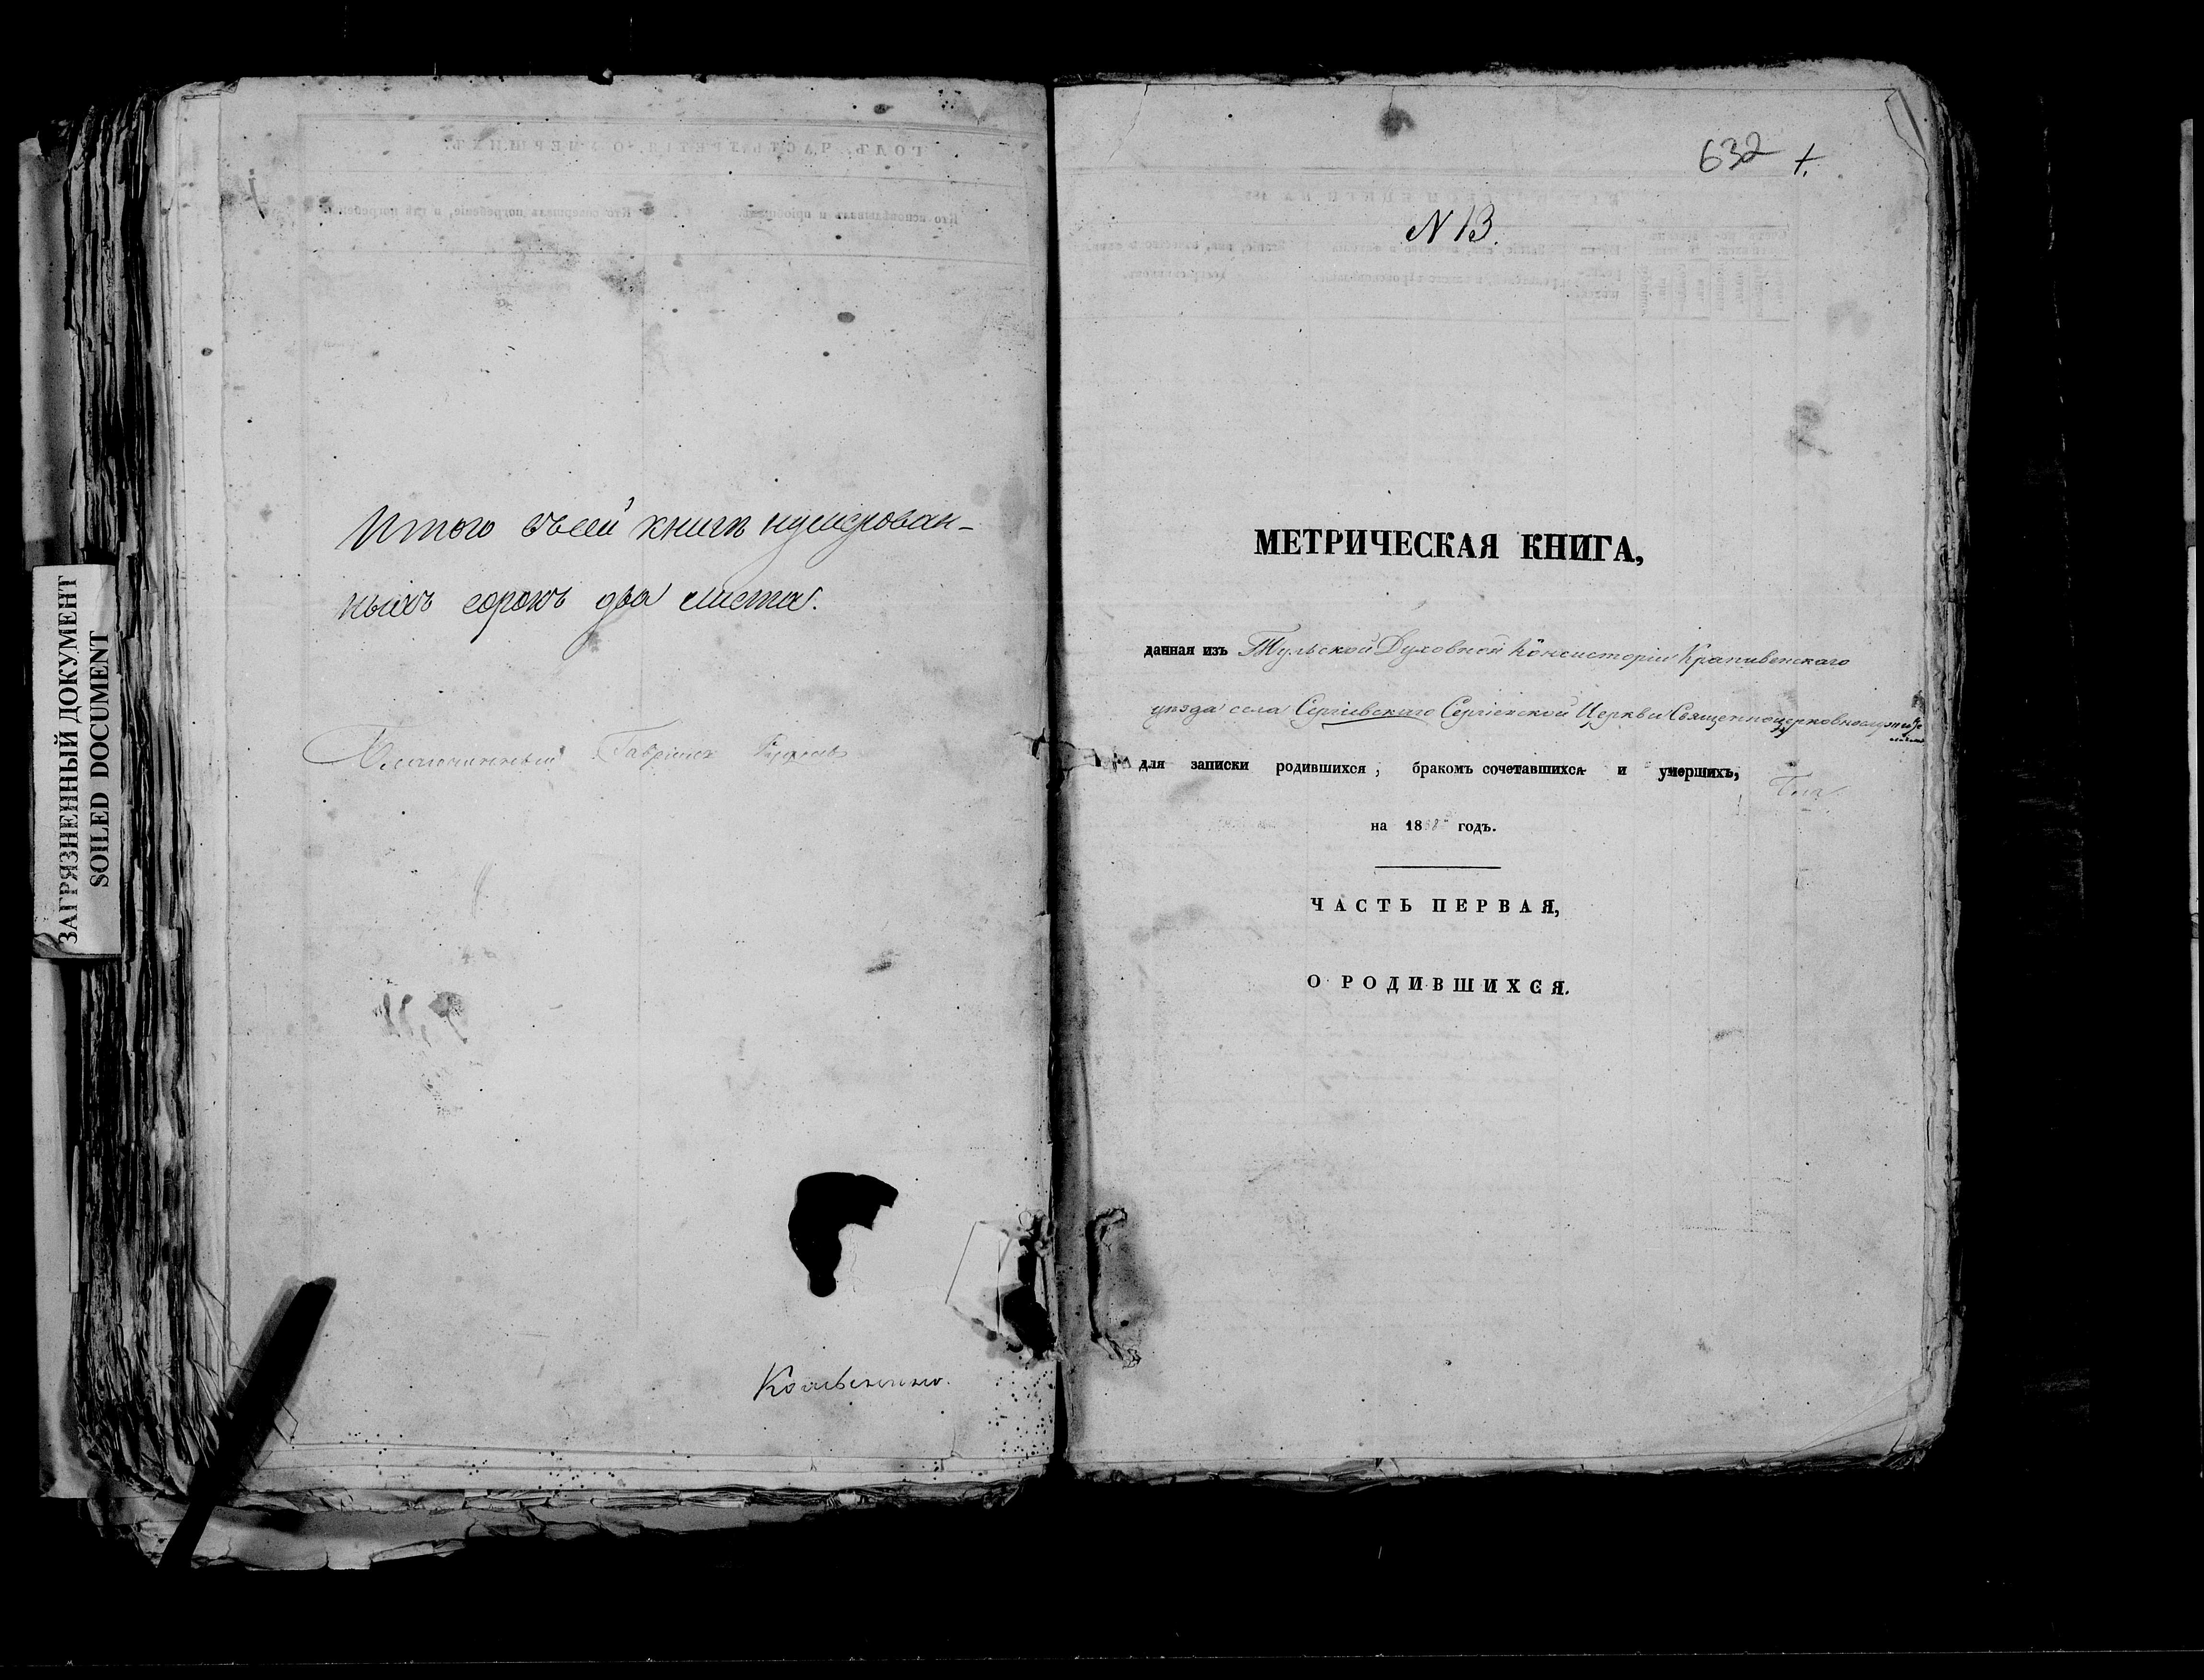 ЗАГРЯЗНЕННЫЙ ДОКУМЕНТ
SOILED DOCUMENT
Итого въ сей книги нумерован-
ныхъ сорокъ два листа.
Гавріилъ
632
N 13.
МЕТРИЧЕСКАЯ КНИГА,
данная изъ Тульской Духовной Консисторіи Крапивенскаго
уѣзда села Сергіевскаго Сергіевской Церкви Священноцерковнослужите
лямъ
для записки родившихся, бракомъ сочетавшихся и умершихъ,
на 18 годъ.
ЧАСТЬ ПЕРВАЯ,
О РОДИВШИХСЯ.